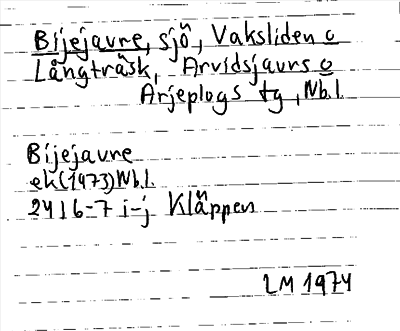 Bijejavre, sjö, Vaksliden o
Långträsk, Arvidsjaurs o
Arjeplogs tg, Nb.l.
Bijejavre
ek(1973)Nb.l.
2416-7 i-j Kläppen
LM 1974